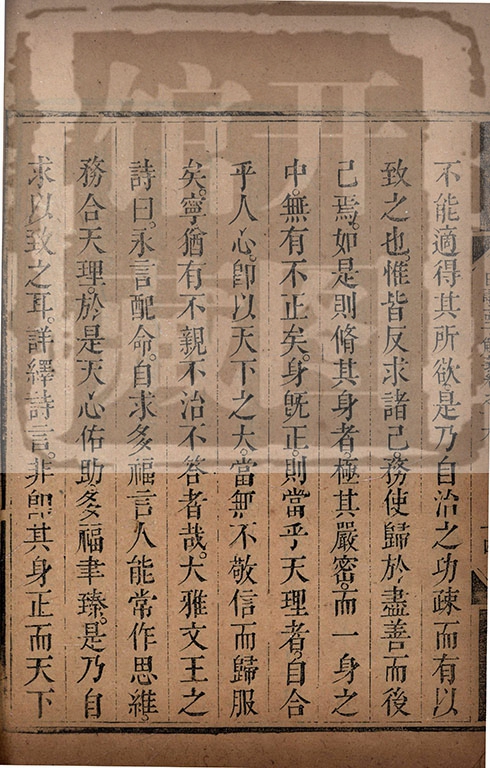 不能適得其所欲是乃自治之功疎而有以
致之也。惟皆反求諸己。務使歸於盡善而後
己焉。如是則脩其身者。極其嚴密。而一身之
中。無有不正矣。身旣正。則當乎天理者。自合
乎人心。卽以天下之大。當無不敬信而歸服
矣。寧猶有不親不治不答者哉。大雅文王之
詩曰。永言配命。自求多福言人能常作思維。
務合天理。於是天心佑助多福聿臻。是乃自
求以致之耳。詳繹詩言。非卽其身正而天下